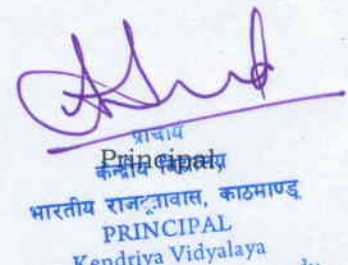 प्राचार्य
Principal,
केन्द्रीय विद्यालय
भारतीय राजदूतावास, काठमाण्डू
PRINCIPAL
Kendriya Vidyalaya